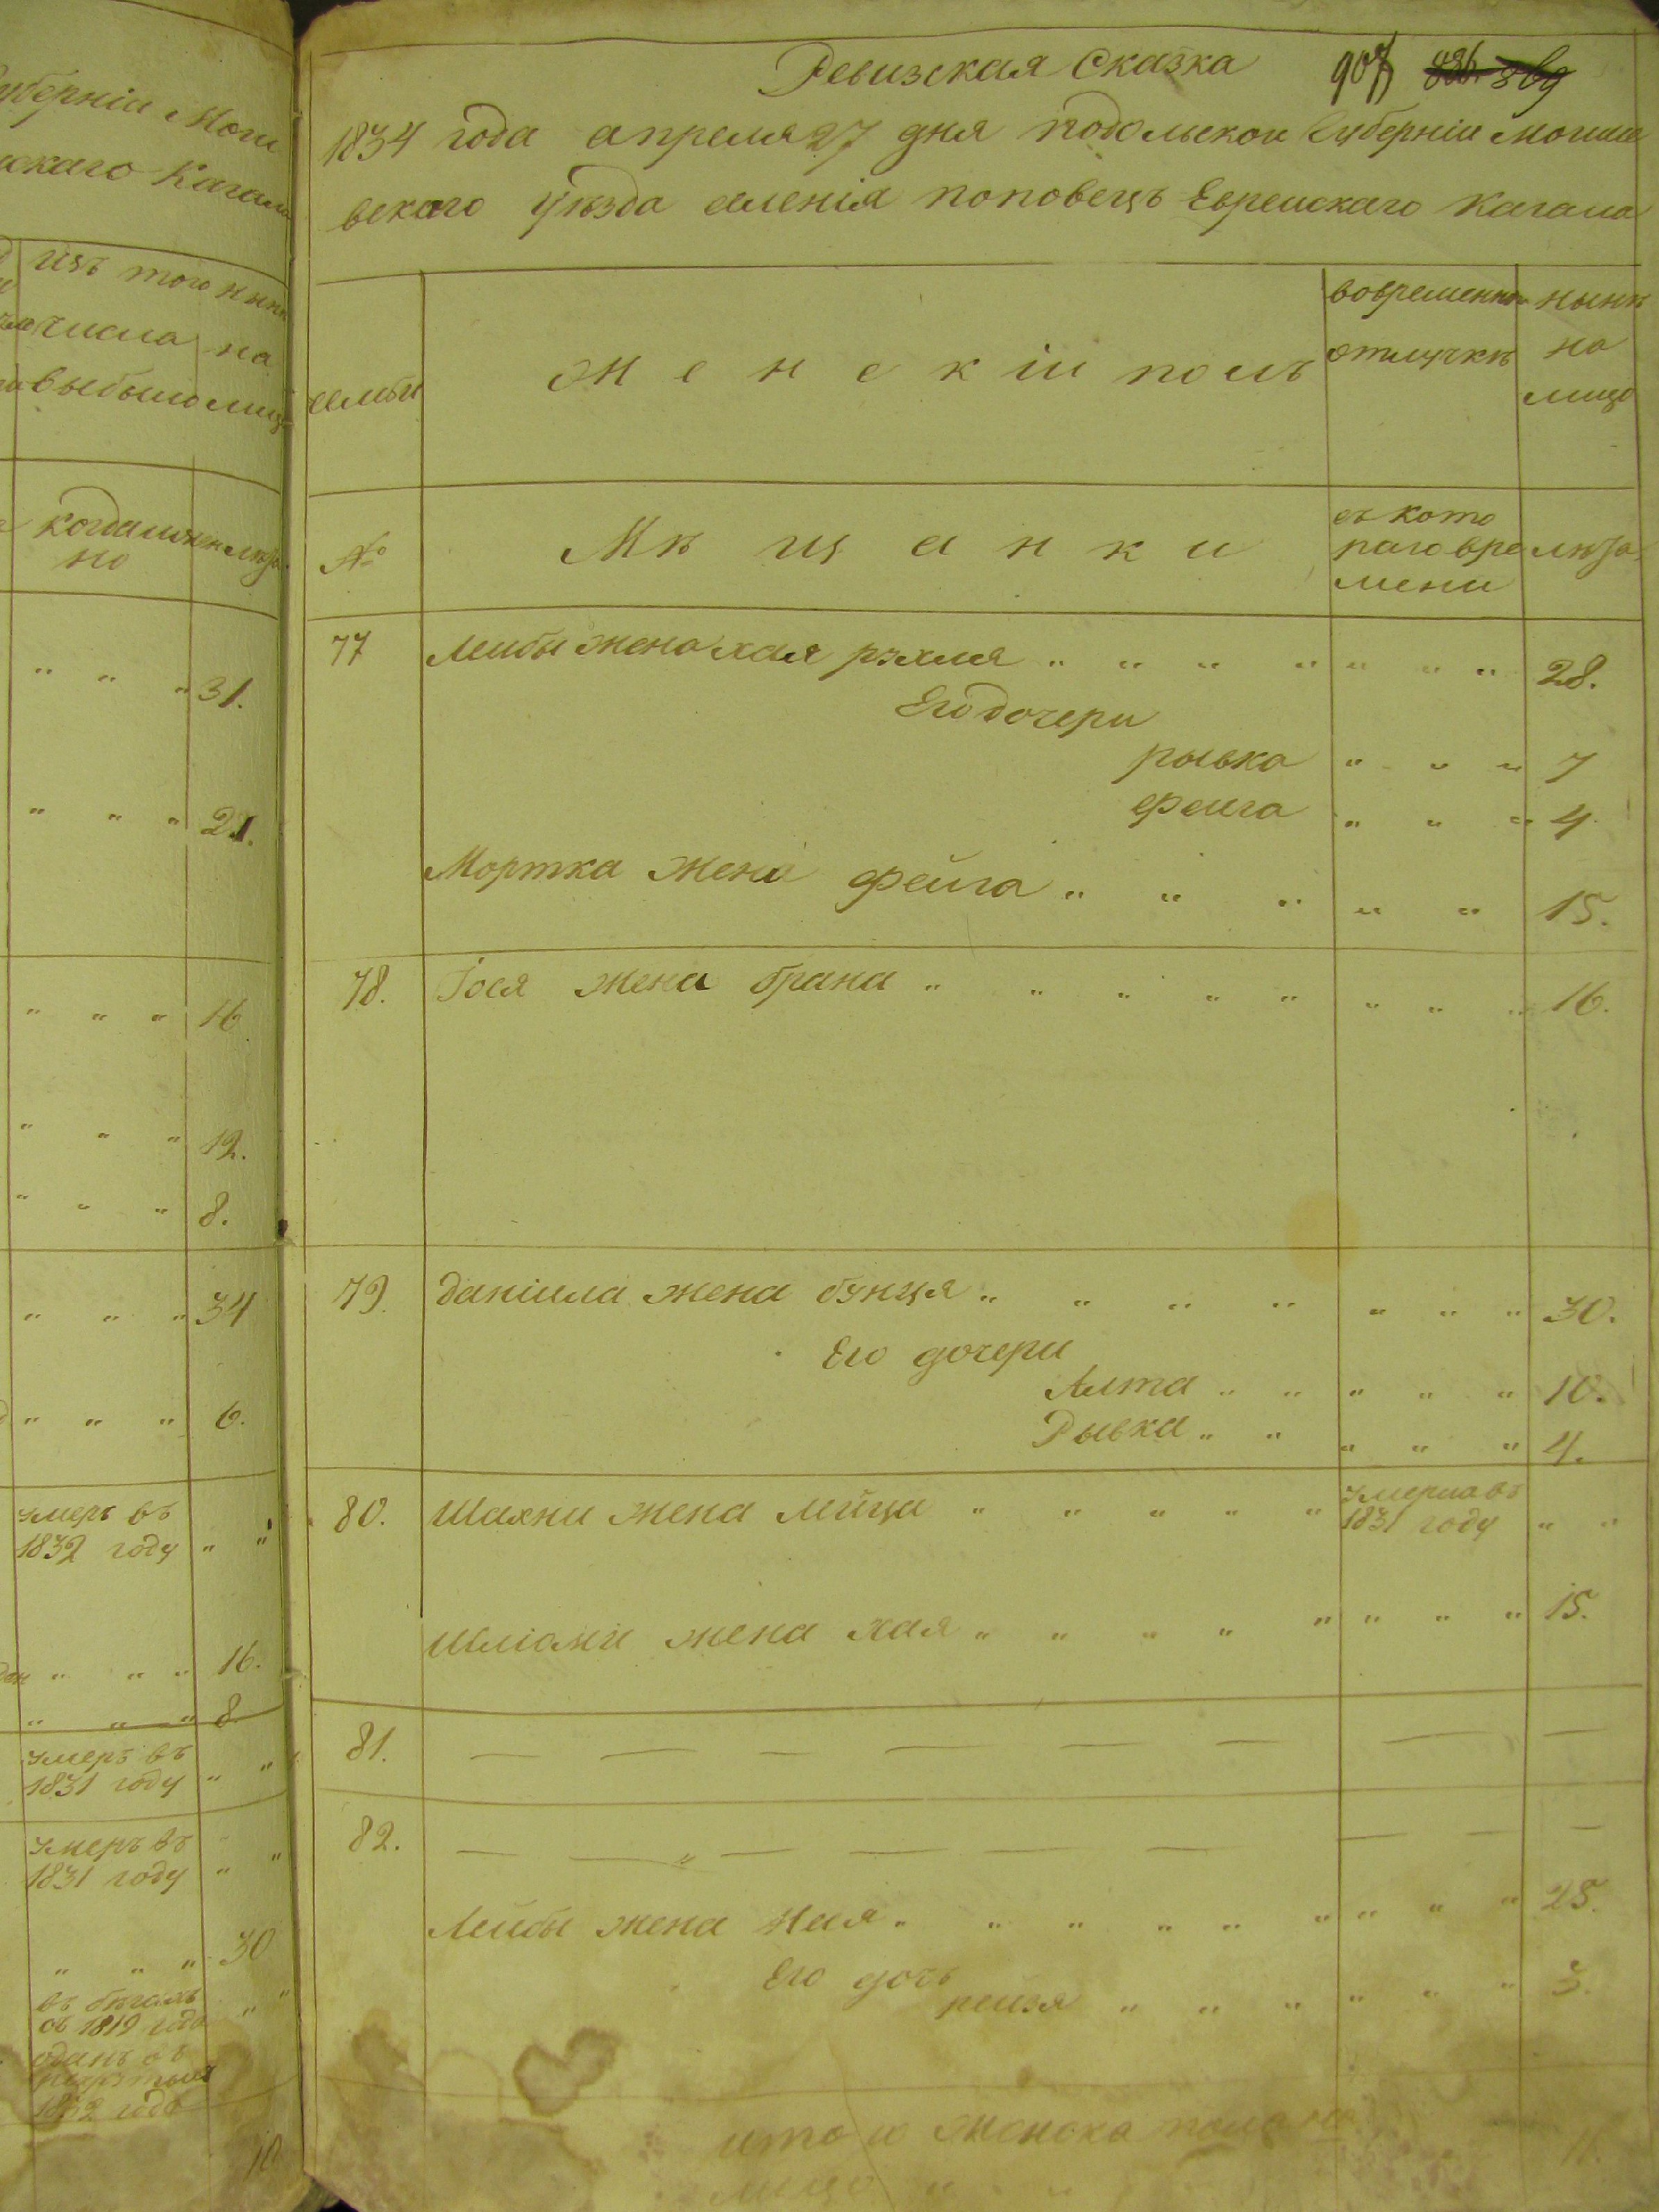 губерніи Моги
скаго Кагала
изъ того
числа
выбыло
нынѣ
на
лицо
когда имян
но
лѣта
" " " 31.
" " " 21.
" " " 16
" " " 12.
" " " 8.
" " " 34
" " " 6.
умеръ въ
1832 году " "
" " " 16.
" " " 8.
умеръ въ
1831 году " "
умеръ въ
1831 году " "
" " " 30
въ бѣгахъ
съ 1819 года " "
1832 года
Ревизская Сказка 907
1834 года апреля 27 дня подольской Губерніи Могиле
вскаго уѣзда селенія поповецъ Еврейскаго Кагала
семьи
женскій полъ
вовременной
отлучкѣ
нынѣ
на
лицо
№
Мѣщанки
съ кото
раго вре
мени
лѣта
77 Лейбы жена хая рухля " " " " " " " 28.
Его дочери
рывка " " " 7
Фейга " " " 4
Мортка жена Фейга " " " " " 15.
78. Іося жена брана " " " " " " " " 16.
79. даніила жена бунця " " " " " " " 30.
Его дочери
Алта " " " " " 10.
Рывка " " " " " 4.
80. Шахни жена лейца " " " " " умерла въ
1831 году " "
Шліоми жена хая " " " " " " " " 15.
81. — — — — — — — — —
82. — — " — — — — — — —
Лейбы жена Хая " " " " " " " " " 25.
Его дочь
рейзя " " " " " " 3.
итого женска пола на
лицо " 11.